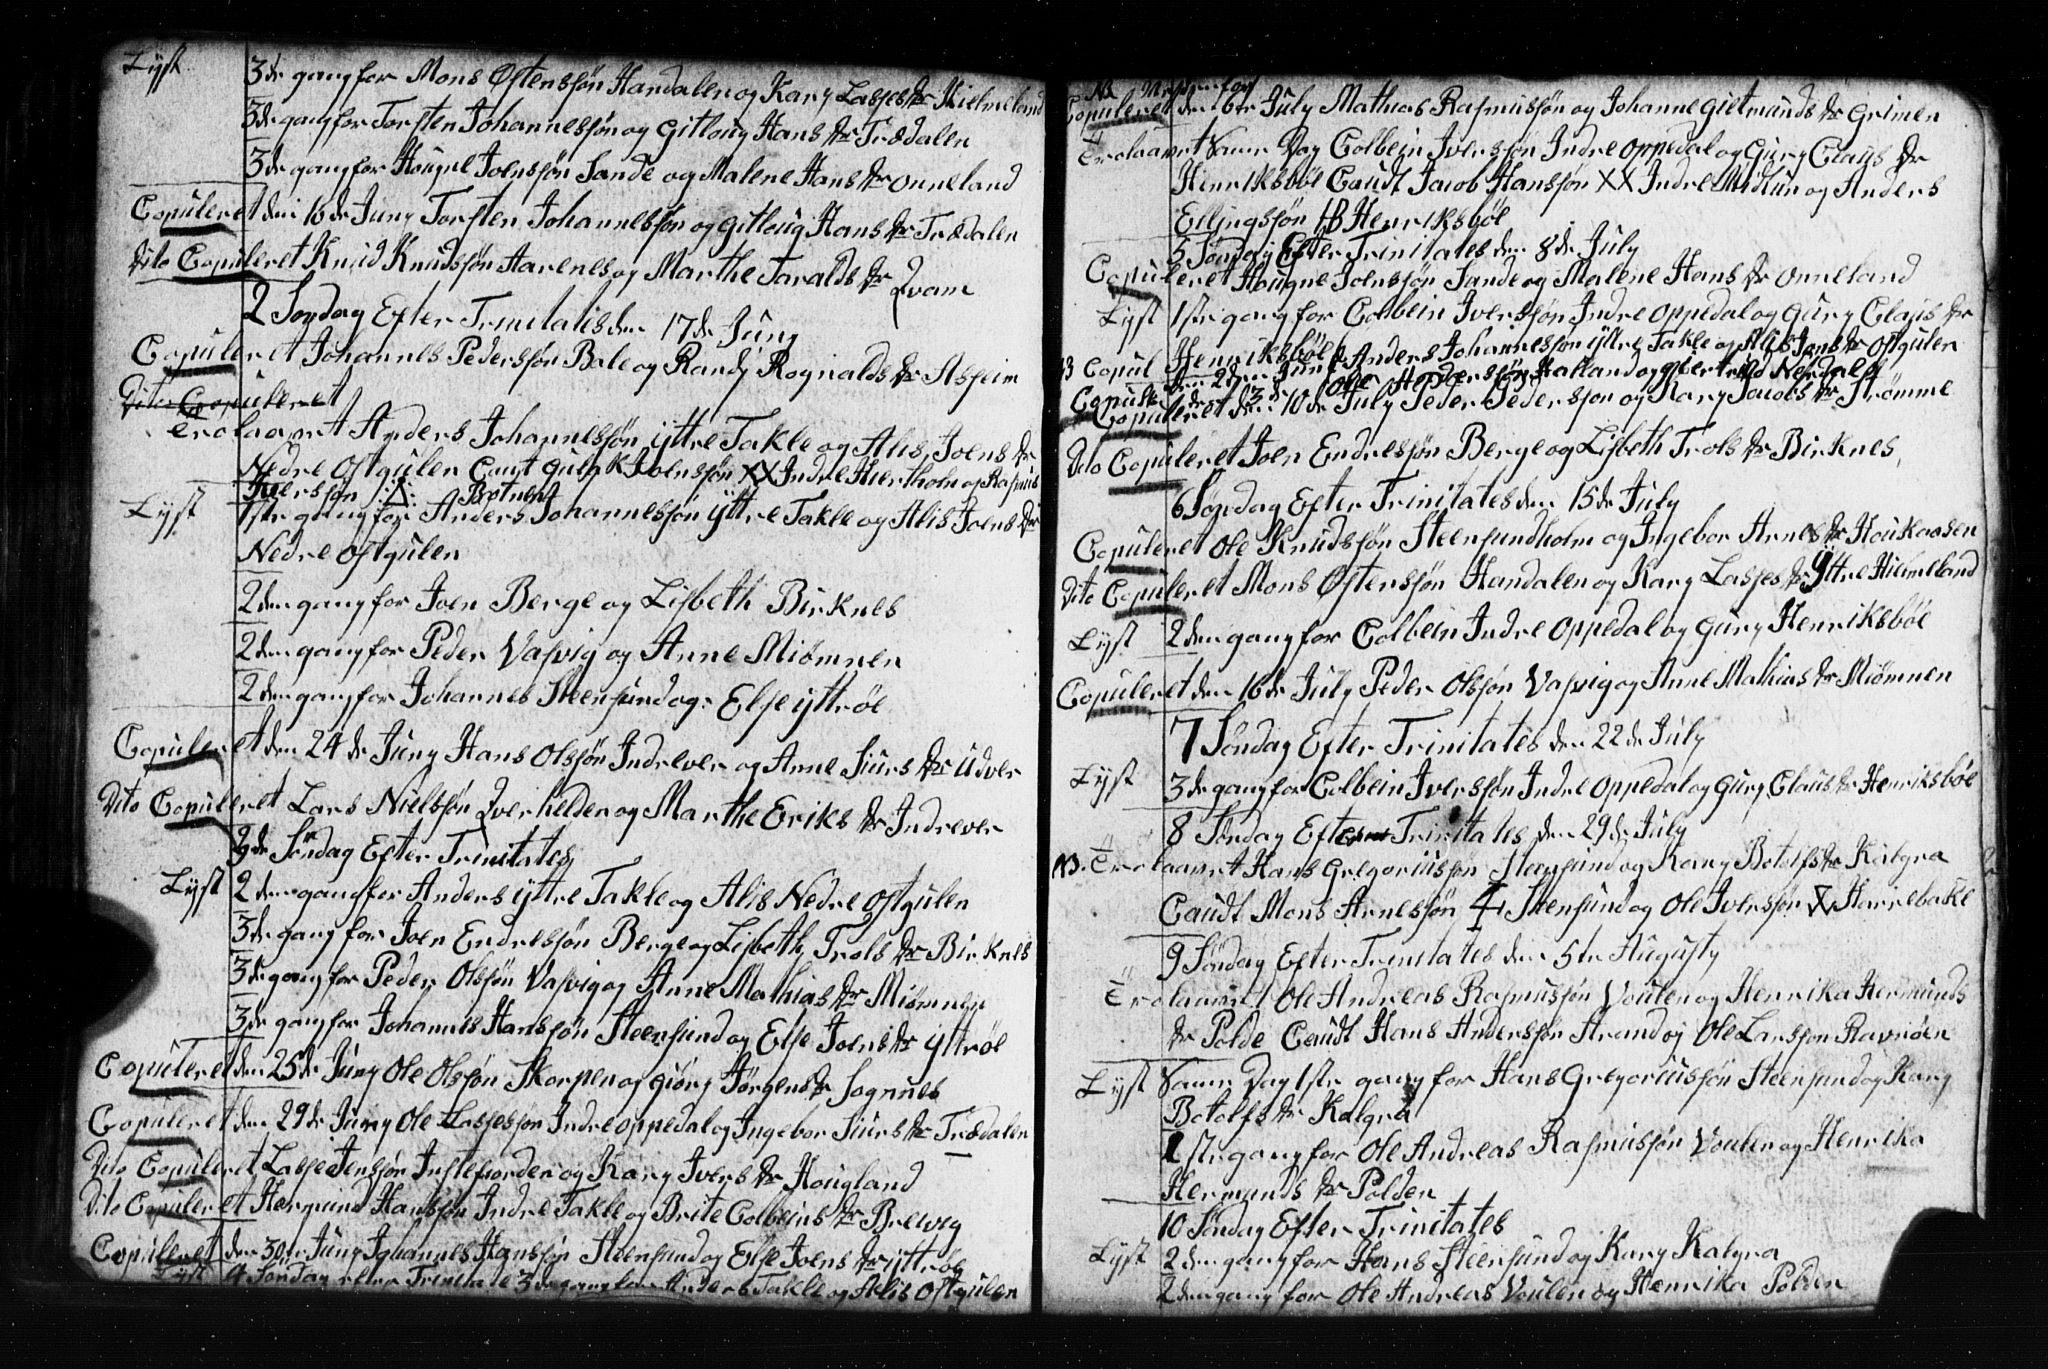 Lyst 3de gang for Mons Ostenssøn Handalen og Kary Lasses dr Hielmeland
3de gang for Torsten Johannessøn og Gitloug Hans dr Trædalen
3de gang for Hougne Joenssøn Sande og Malene Hans dr Onneland
Copuleret den 16de Juny Torsten Johannessøn og Gitloug Hans dr Trædalen
Dito Copuleret Knud Knudssøn Aarenes og Marthe Taralds dr Qvam
2 Søndag Efter Trinitatis den 17de Juny
Copuleret Johannes Pederssøn Bale og Randj Rognalds dr Asheim
Dito Copuleret
Trolaavet Anders Johannessøn yttre Takle og Alis Joens dr
Nedre Ostgulen Caut Gulak Joenssøn XX Indre Hiertholm og Rasmus
Iverssøn Botnen
Lyst 1ste gang for Anders Johannessøn yttre Takle og Alis Joens dr
Nedre Ostgulen
2den gang for Joen Berge og Lisbeth Birknes
2den gang for Peder Vasvig og Anne Miømnen
2den gang for Johannes Steensund og Else yttrøe
Copuleret den 24de Juny Hans Olssøn Indrever og Anne Siurs dr Udver
Dito Copuleret Lars Nielssøn Qverhelden og Marthe Eriks dr Indrever
3de Søndag Efter Trinitates
Lyst 2den gang for Anders yttre Takle og Alis Nedre Ostgulen
3de gang for Joen Endressøn Berge og Lisbeth Trols dr Birknes
3de gang for Peder Olssøn Vasvig og Anne Mathias dr Miømnen
3de gang for Johannes Hanssøn Steensund og Else Joens dr yttrøe
Copuleret den 25de Juny Ole Olssøn Skorpen og Giøry Jørgens dr Sognnes
Copuleret den 29de Juny Ole Lassessøn Indre Oppedal og Ingebor Siurs dr Trædalen
Dito Copuleret Lasse Jenssøn Instefiorden og Kary Ivers dr Hougland
Dito Copuleret Hermund Hanssøn Indre Takle og Brite Colbeins dr Brewig
Copuleret den 30te Juny Johannes Hanssøn Steensund og Else Joens dr yttrøe
Lyst 4 Søndag efter Trinitate 3de gang for Anders Takle og Alis Ostgulen
Copuleret den 6te July Mathias Rasmussøn og Johanne Gietmunds dr Grinen
Trolaavet Samme Dag Colbein Iverssøn Indre Oppedal og Gury Claus dr
Henriksbøe Caudt Jacob Hanssøn XX Indre Midtun og Anders
Ellingssøn HB Henriksbøe
5 Søndag Efter Trinitates den 8de July
Copuleret Hougne Joenssøn Sande og Malene Hans dr Onneland
Lyst 1ste gang for Colbein Iverssøn Indre Oppedal og Gury Claus dr
Henriksbøe
Copul Anders Johannessøn yttre Takle og Alis Joens dr Ostgulen
Copul Ole Pederssøn Halland og Giertrud Nerdale
Copuleret den 10de July Peder Pederssøn og Kary Jacobs dr Strømme
Dito Copuleret Joen Endressøn Berge og Lisbeth Trols dr Birknes
6 Søndag Efter Trinitates den 15de July
Copuleret Ole Knudssøn Steensundholm og Ingebor Arnes dr Houkaasen
Dito Copuleret Mons Ostenssøn Handalen og Kary Lasses dr Yttre Hielmeland
Lyst 2den gang for Colbein Indre Oppedal og Gury Henriksbøe
Copuleret den 16de July Peder Olssøn Vasvig og Anne Mathias dr Miømnen
7 Søndag Efter Trinitates den 22de July
Lyst 3de gang for Colbein Iverssøn Indre Oppedal og Gury Claus dr Henriksbøe
8 Søndag Efter Trinitates den 29de July
NB. Trolaavet Hans Gregoriussøn Steensund og Kary Botolfs dr Kalgra
Caudt Mons Arnessøn Steensund og Ole Iverssøn X Hairebakke
9 Søndag Efter Trinitates den 5te Augusty
Trolaavet Ole Andreas Rasmussøn Voulen og Henrika Hermunds
dr Polde Caudt Hans Anderssøn Strand og Ole Larssøn Ravnøen
Lyst Samme Dag 1ste gang for Hans Gregoriussøn Steensund og Kary
Botolfs dr Kalgra
1ste gang for Ole Andreas Rasmussøn Voulen og Henrika
Hermunds dr Polden
10 Søndag Efter Trinitates
Lyst 2den gang for Hans Steensund og Kary Kalgra
2den gang for Ole Andreas Voulen og Henrika Polden